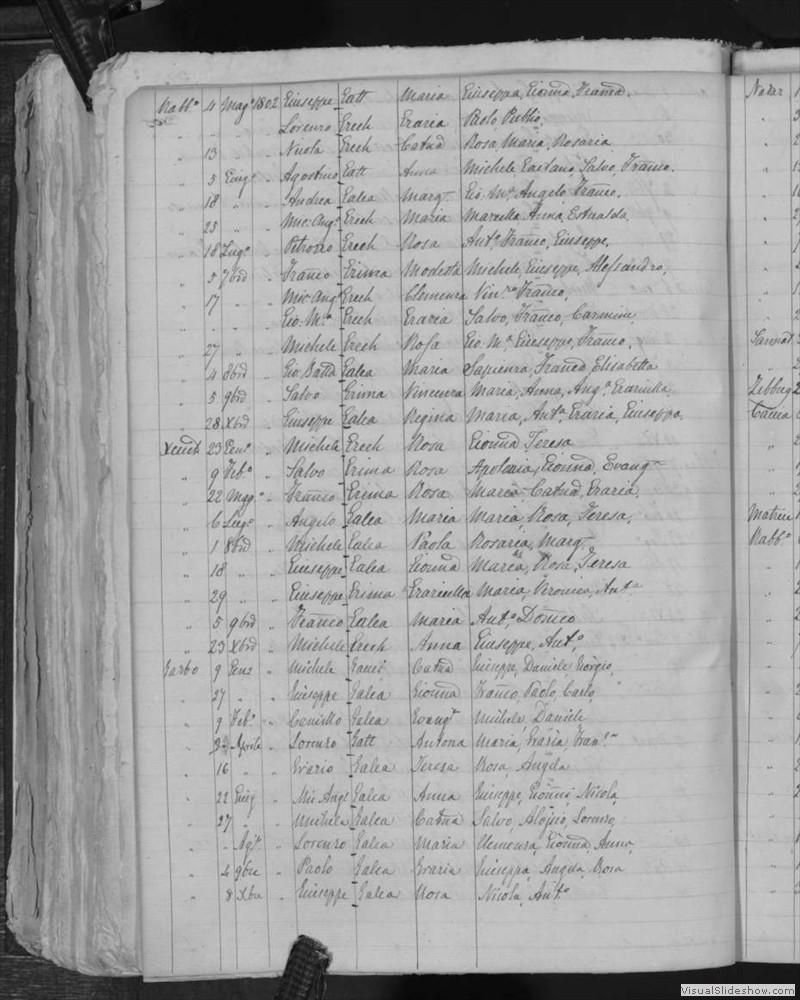 Rabb.o 4 Mag.o 1802 Giuseppe Gatt Maria Giuseppa, Gionna, Franca.
" " " Lorenzo Grech Grazia Paolo, Publio,
" 13 " " Nicola Grech Catna Rosa, Maria, Rosaria
" 5 Giug.o " Agostino Gatt Anna Michele, Gaetano, Salvo, Franco.
" 18 " " Andrea Galea Marg. Gio. Ma. Angelo, Franco.
" 25 " " Mic: Ang.o Grech Maria Marcello, Anna,
" 18 Lug.o " Petronio Grech Rosa Ant.o Franco, Giuseppe,
" 5 7brè " Franco Grima Modesta Michele, Giuseppe, Alessandro,
" 17 " " Mic: Ang. Grech Clemenza Vin.zo Franco,
" " " Gio. Ma. Grech Grazia Salvo, Franco, Carmine
" 27 " " Michele Grech Rosa Gio. Ma. Giuseppe, Franco.
" 4 8brè " Gio. Batta Galea Maria Sapienza, Franca, Elisabetta
" 5 9brè " Salvo Grima Vincenza Maria, Anna, Ang.a
" 28 Xbrè " Giuseppe Galea Regina Maria, Ant.a Grazia, Giuseppa,
Xeuch 23 Gen.o " Michele Grech Rosa Gionna Teresa
" 9 Feb.o " Salvo Grima Rosa Apolonia, Gionna, Evang.
" 22 Mag.o " Franco Grima Rosa Maria, Catna, Grazia,
" 6 Lug.o " Angelo Galea Maria Maria, Rosa, Teresa,
" 1 8brè " Michele Galea Paola Rosaria, Marg.
" 18 " " Giuseppe Galea Gionna Maria, Rosa, Teresa
" 29 " " Giuseppe Grima Graziulla Maria, Veronica, Ant.a
" 5 9brè " Franco Galea Maria Ant.o Domco
" 23 Xbrè " Michele Grech Anna Giuseppe, Ant.o
Farbo 9 Gen.o " Michele Gauci Catna Giuseppe, Daniele, Giorgio,
" 27 " " Giuseppe Galea Gionna Franco, Paolo, Carlo,
" 9 Feb.o " Camillo Galea Evang. Michele, Daniele
" Aprile " Lorenzo Gatt Antona Maria, Grazia, Fran.
" 16 " " Grazio Galea Teresa Rosa, Angela
" 22 Giug " Mic Angl Galea Anna Giuseppe, Gionni, Nicola,
" 27 " " Michele Galea Catna Salvo, Aloisio, Lorenzo,
" " Ag.to " Lorenzo Galea Maria Clemenza, Gionna, Anna,
" 4 9bre " Paolo Galea Grazia Giuseppa, Angela, Rosa
" 8 Xbre " Giuseppe Galea Rosa Nicola, Ant.o
Naxar
Sannat
Zebbug 2
Caccia
Matrice
Rabb.o
VisualSlideshow.com